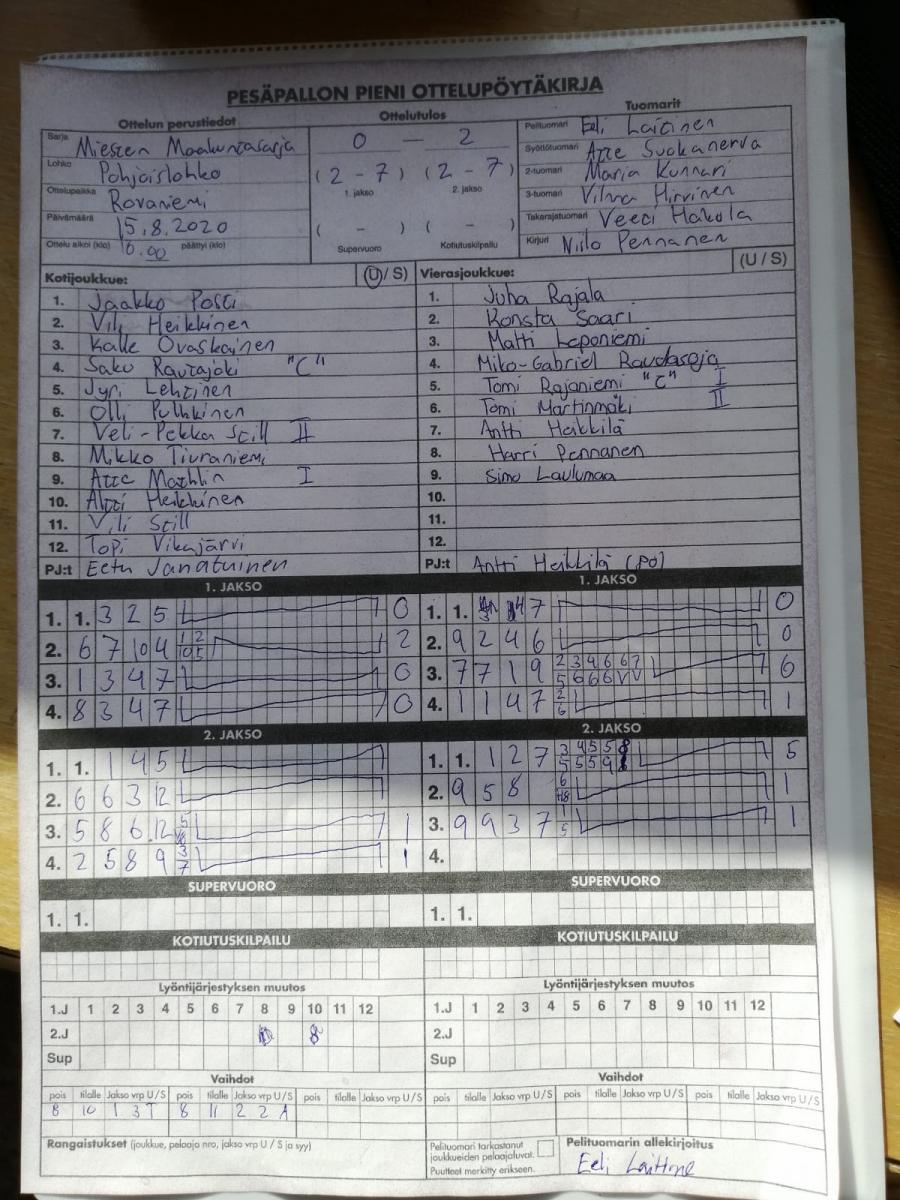 PESÄPALLON PIENI OTTELUPÖYTÄKIRJA
Ottelun perustiedot
Sarja Miesten Maakuntasarja
Lohko Pohjoislohko
Ottelupaikka Rovaniemi
Päivämäärä 15.8.2020
Ottelu alkoi (klo) 16.00 päättyi (klo)
Ottelutulos
0 — 2
(2 - 7) (2 - 7)
1. jakso 2. jakso
( - ) ( - )
Supervuoro Kotiutuskilpailu
Tuomarit
Pelituomari Eeli Laitinen
Syöttötuomari Atte Suokanerva
2-tuomari Maria Kunnari
3-tuomari Vilma Hirvinen
Takarajatuomari Veeti Hakola
Kirjuri Niilo Pennanen
Kotijoukkue: (U / S)
1. Jaakko Posti
2. Vili Heikkinen
3. Kalle Ovaskainen
4. Saku Rautajoki "C"
5. Jyri Lehtinen
6. Olli Pulkkinen
7. Veli-Pekka Still II
8. Mikko Tiuraniemi
9. Atte Mathlin I
10. Altti Heikkinen
11. Vili Still
12. Topi Vikajärvi
PJ:t Eetu Janatuinen
Vierasjoukkue: (U / S)
1. Juha Rajala
2. Konsta Saari
3. Matti Leponiemi
4. Miko-Gabriel Raudasoja
5. Tomi Rajaniemi "C" I
6. Tomi Martinmäki II
7. Antti Heikkilä
8. Harri Pennanen
9. Simo Laulumaa
10.
11.
12.
PJ:t Antti Heikkilä (PO)
1. JAKSO
1. 1. 3 2 5 0
2. 6 7 10 4 2
3. 1 3 4 7 0
4. 8 3 4 7 0
1. JAKSO
1. 1. 4 7 0
2. 9 2 4 6 0
3. 7 7 1 9 2 3 4 6 6 7 6
4. 1 1 4 7 2 6 1
2. JAKSO
1. 1. 1 4 5
2. 6 6 3 12
3. 5 8 6 12 1
4. 2 5 8 9 3 7 1
2. JAKSO
1. 1. 1 2 7 3 4 5 5 8 5
2. 9 5 8 1
3. 9 9 3 7 1 5 1
4.
SUPERVUORO
1. 1.
SUPERVUORO
1. 1.
KOTIUTUSKILPAILU
KOTIUTUSKILPAILU
Lyöntijärjestyksen muutos
1.J 1 2 3 4 5 6 7 8 9 10 11 12
2.J 8
Sup
Lyöntijärjestyksen muutos
1.J 1 2 3 4 5 6 7 8 9 10 11 12
2.J
Sup
Vaihdot
pois tilalle Jakso vrp U/S pois tilalle Jakso vrp U/S pois tilalle Jakso vrp U/S
8 10 1 3 T 8 11 2 2 A
Vaihdot
pois tilalle Jakso vrp U/S pois tilalle Jakso vrp U/S pois tilalle Jakso vrp U/S
Rangaistukset (joukkue, pelaaja nro, jakso vrp U / S ja syy)
Pelituomari tarkastanut
joukkueiden pelaajaluvat.
Puutteet merkitty erikseen.
Pelituomarin allekirjoitus
Eeli Laitinen